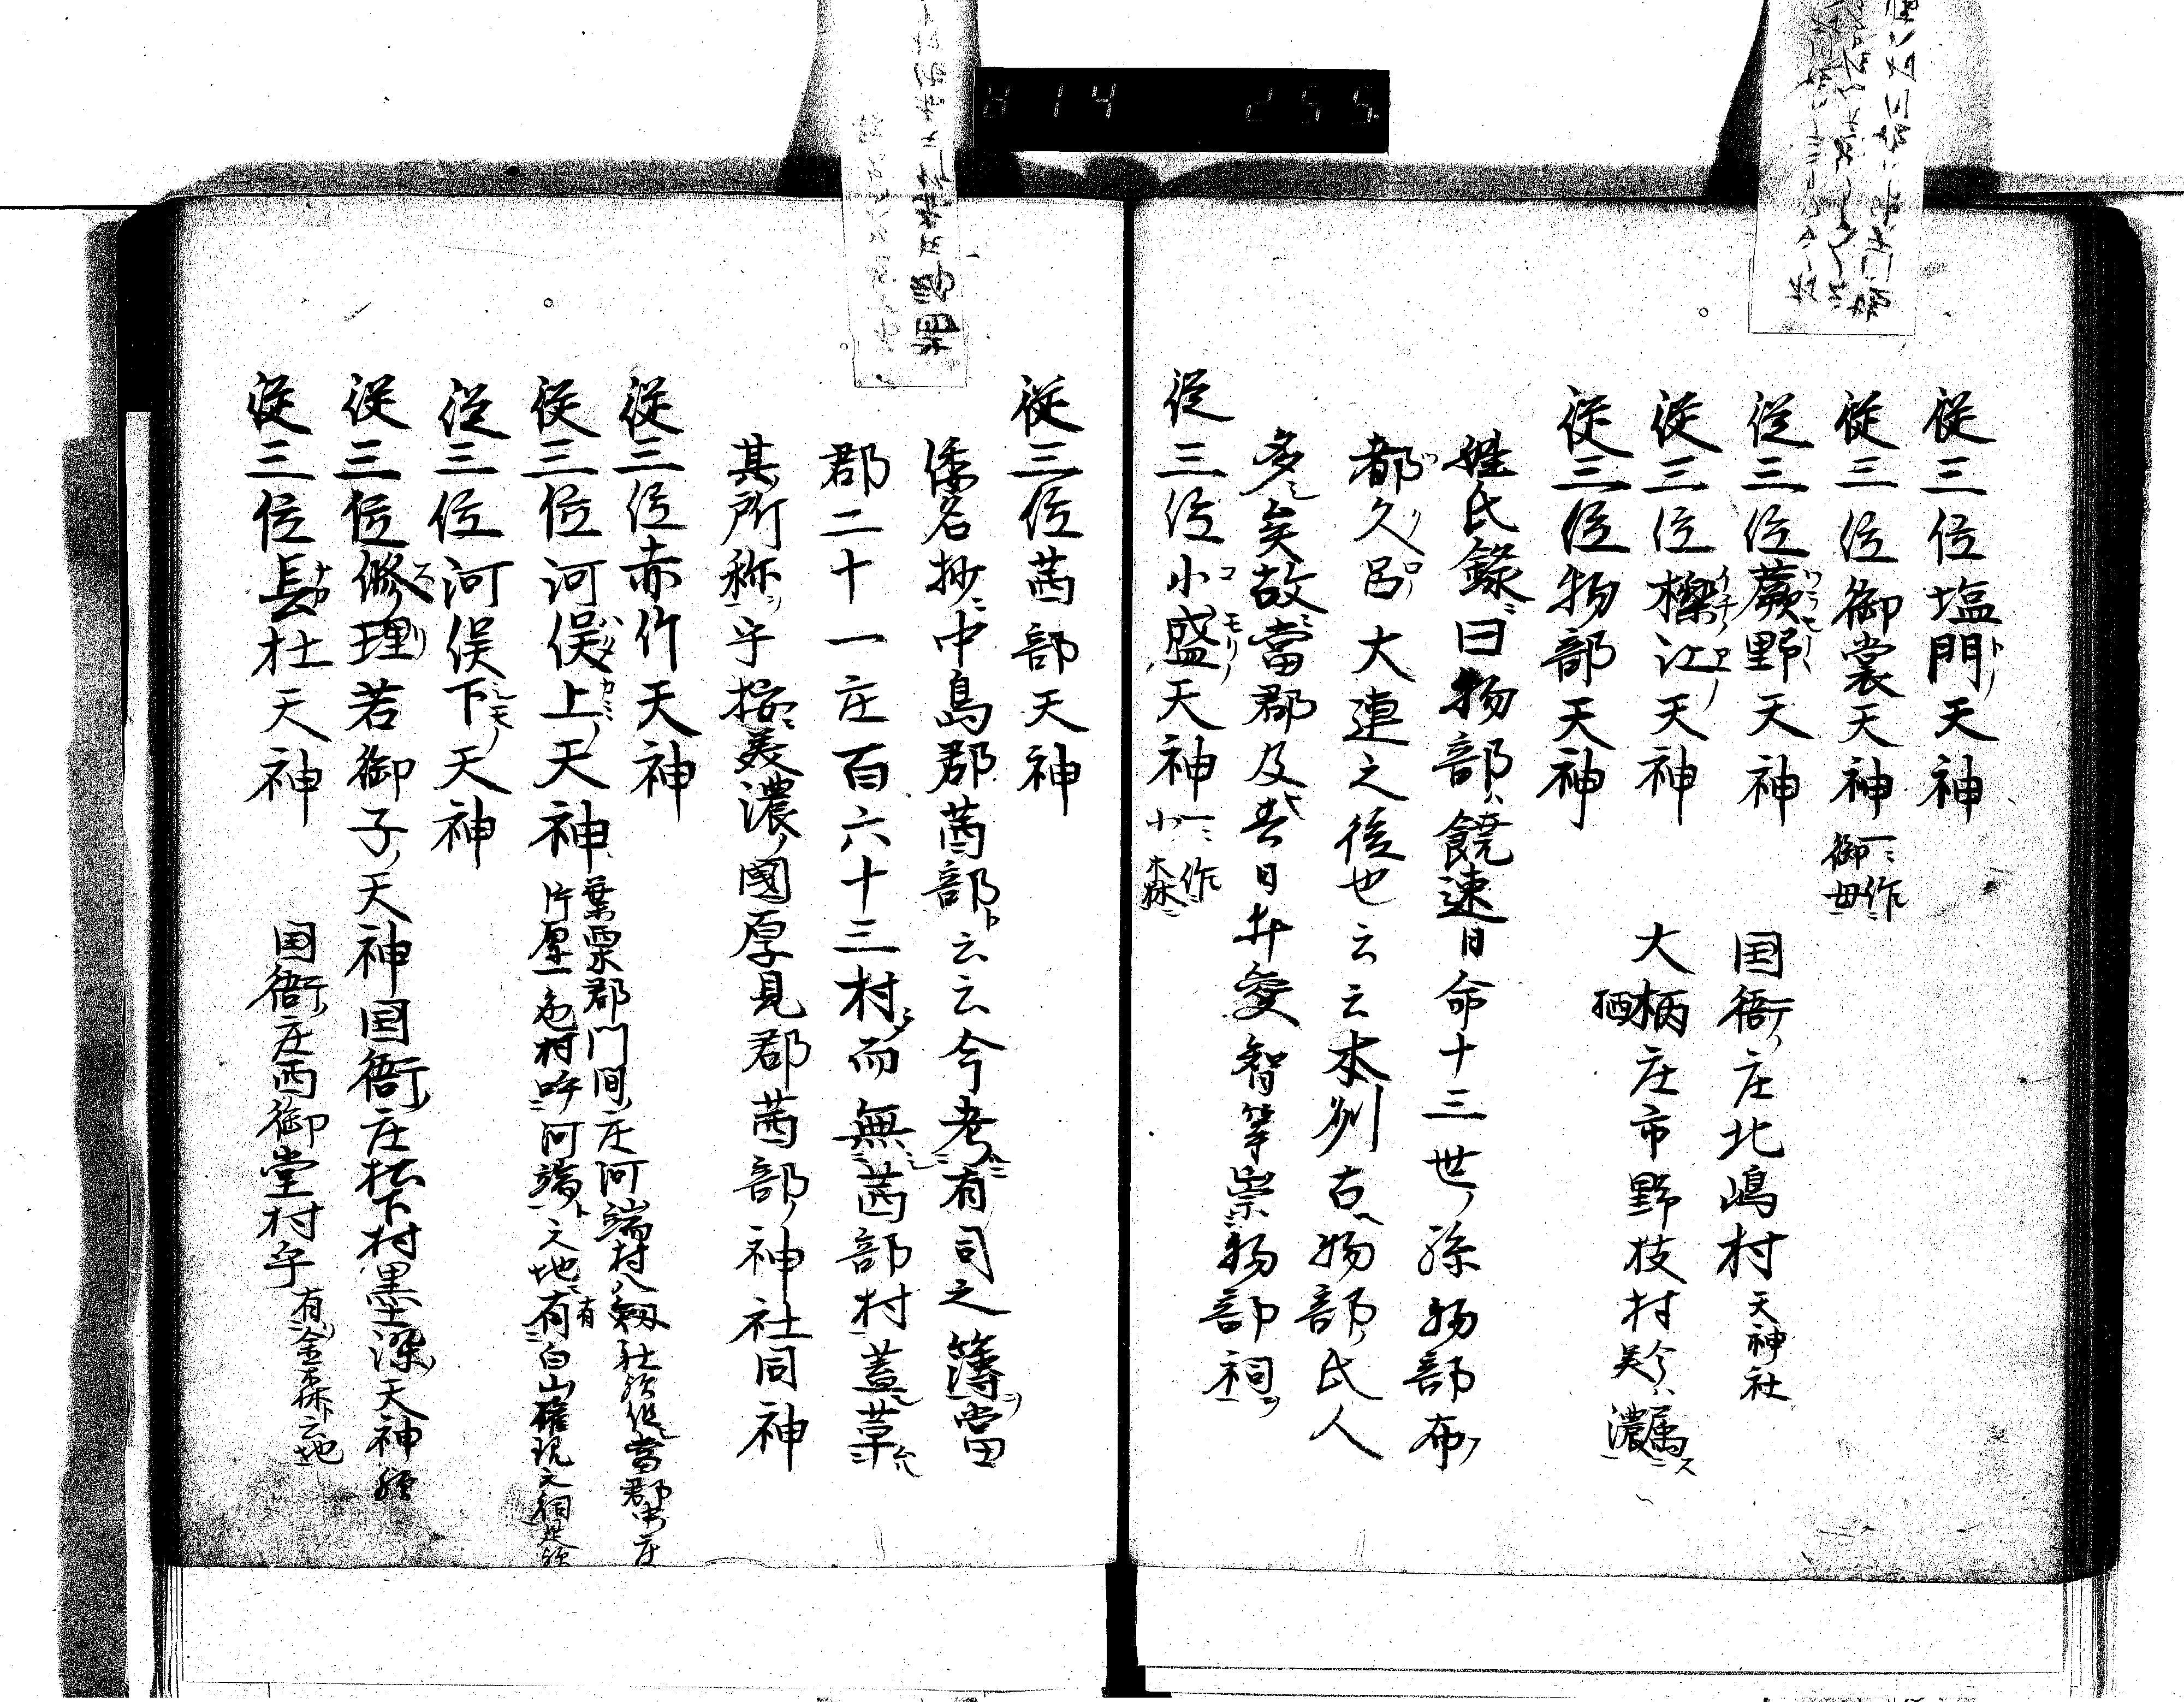 従三位塩門天神
従三位御裳天神 一作御母
従三位蕨野天神 国衙庄北嶋村天神社
従三位櫟江天神 大柄庄市野枝村歟今属美濃
従三位物部天神
姓氏録曰物部饒速日命十三世孫物部布
都久呂大連之後也云云本州古物部氏人
多矣故當郡及春日井愛智等崇物部祠
従三位小盛天神 一作小森
従三位茜部天神
倭名抄中島郡茜部云云今考有司之簿當
郡二十一庄百六十三村而無茜部村蓋草
其所称乎按美濃國厚見郡茜部神社同神
従三位赤竹天神
従三位河俣上天神 葉栗郡門间庄河端村八剱社欤但當郡中庄
片原一色村呼河端之地有白山権現之祠是欤
従三位河俣下天神
従三位修理若御子天神 国衙庄松下村墨染天神欤
従三位長杜天神 国衙庄西御堂村乎有金森云地